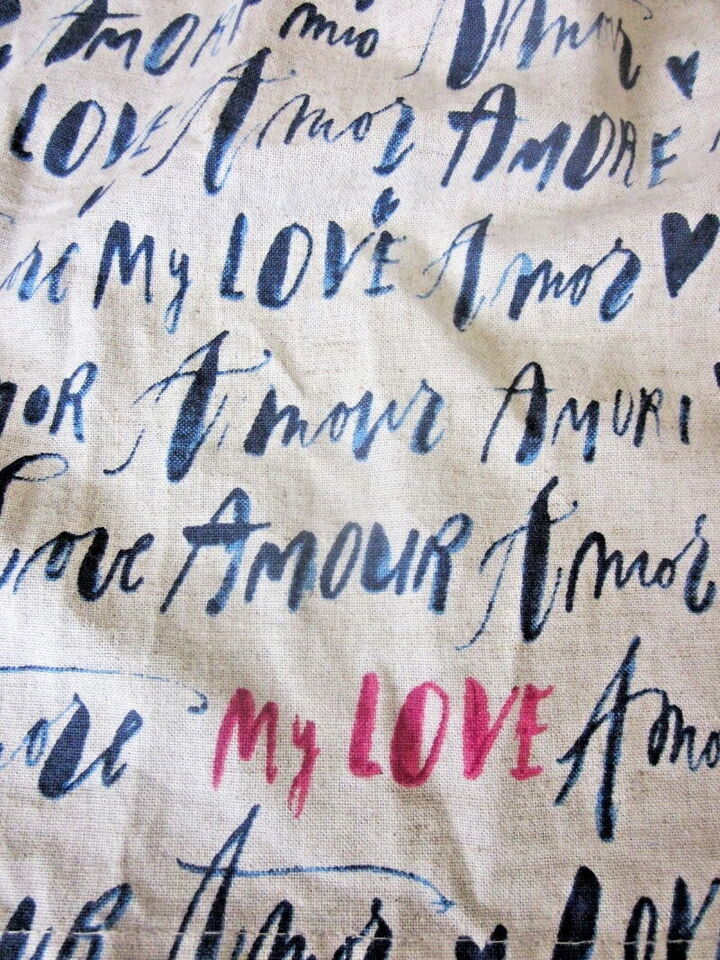 AMOR mio Amor
LOVE Amor AMORE
My LOVE Amor
Amour AMORI
Love AMOUR Amor
My LOVE Amo
Amor LOV